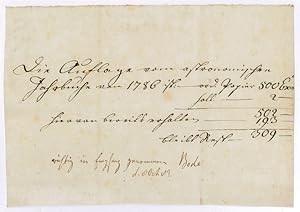 Die Auflage vom astronomischen
Jahrbuche von 1786 ist 500 Ex
soll 2
502
hiervon bereits erhalten 193
bleibt Rest 309
richtig in Empfang genommen Bode